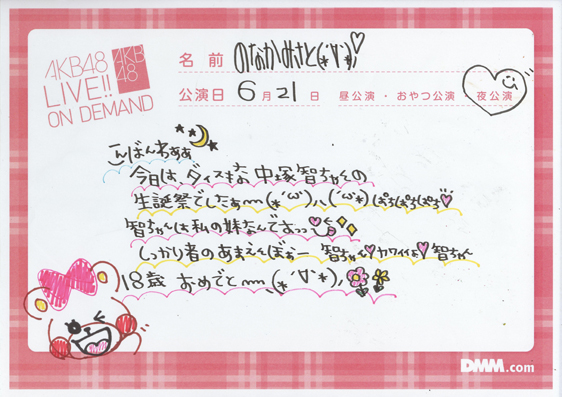 AKB48
LIVE!!
ON DEMAND
AKB
48
名 前 のなかみさと(*´∀`*)♡
公演日 6月21日 昼公演・おやつ公演・夜公演
こんばんわぁぁ
今日は、ダイスキな 中塚智ちゃんの
生誕祭でしたぁ〜(*´ω`)人(´ω`*)ぱちぱちぱち♡
智ちゃんは私の妹なんですよっっ♡
しっかり者のあまえんぼぉー 智ちゃん♡カワイイよ♡智ちゃん
18歳 おめでと〜(*´∀`*)ノ
DMM.com